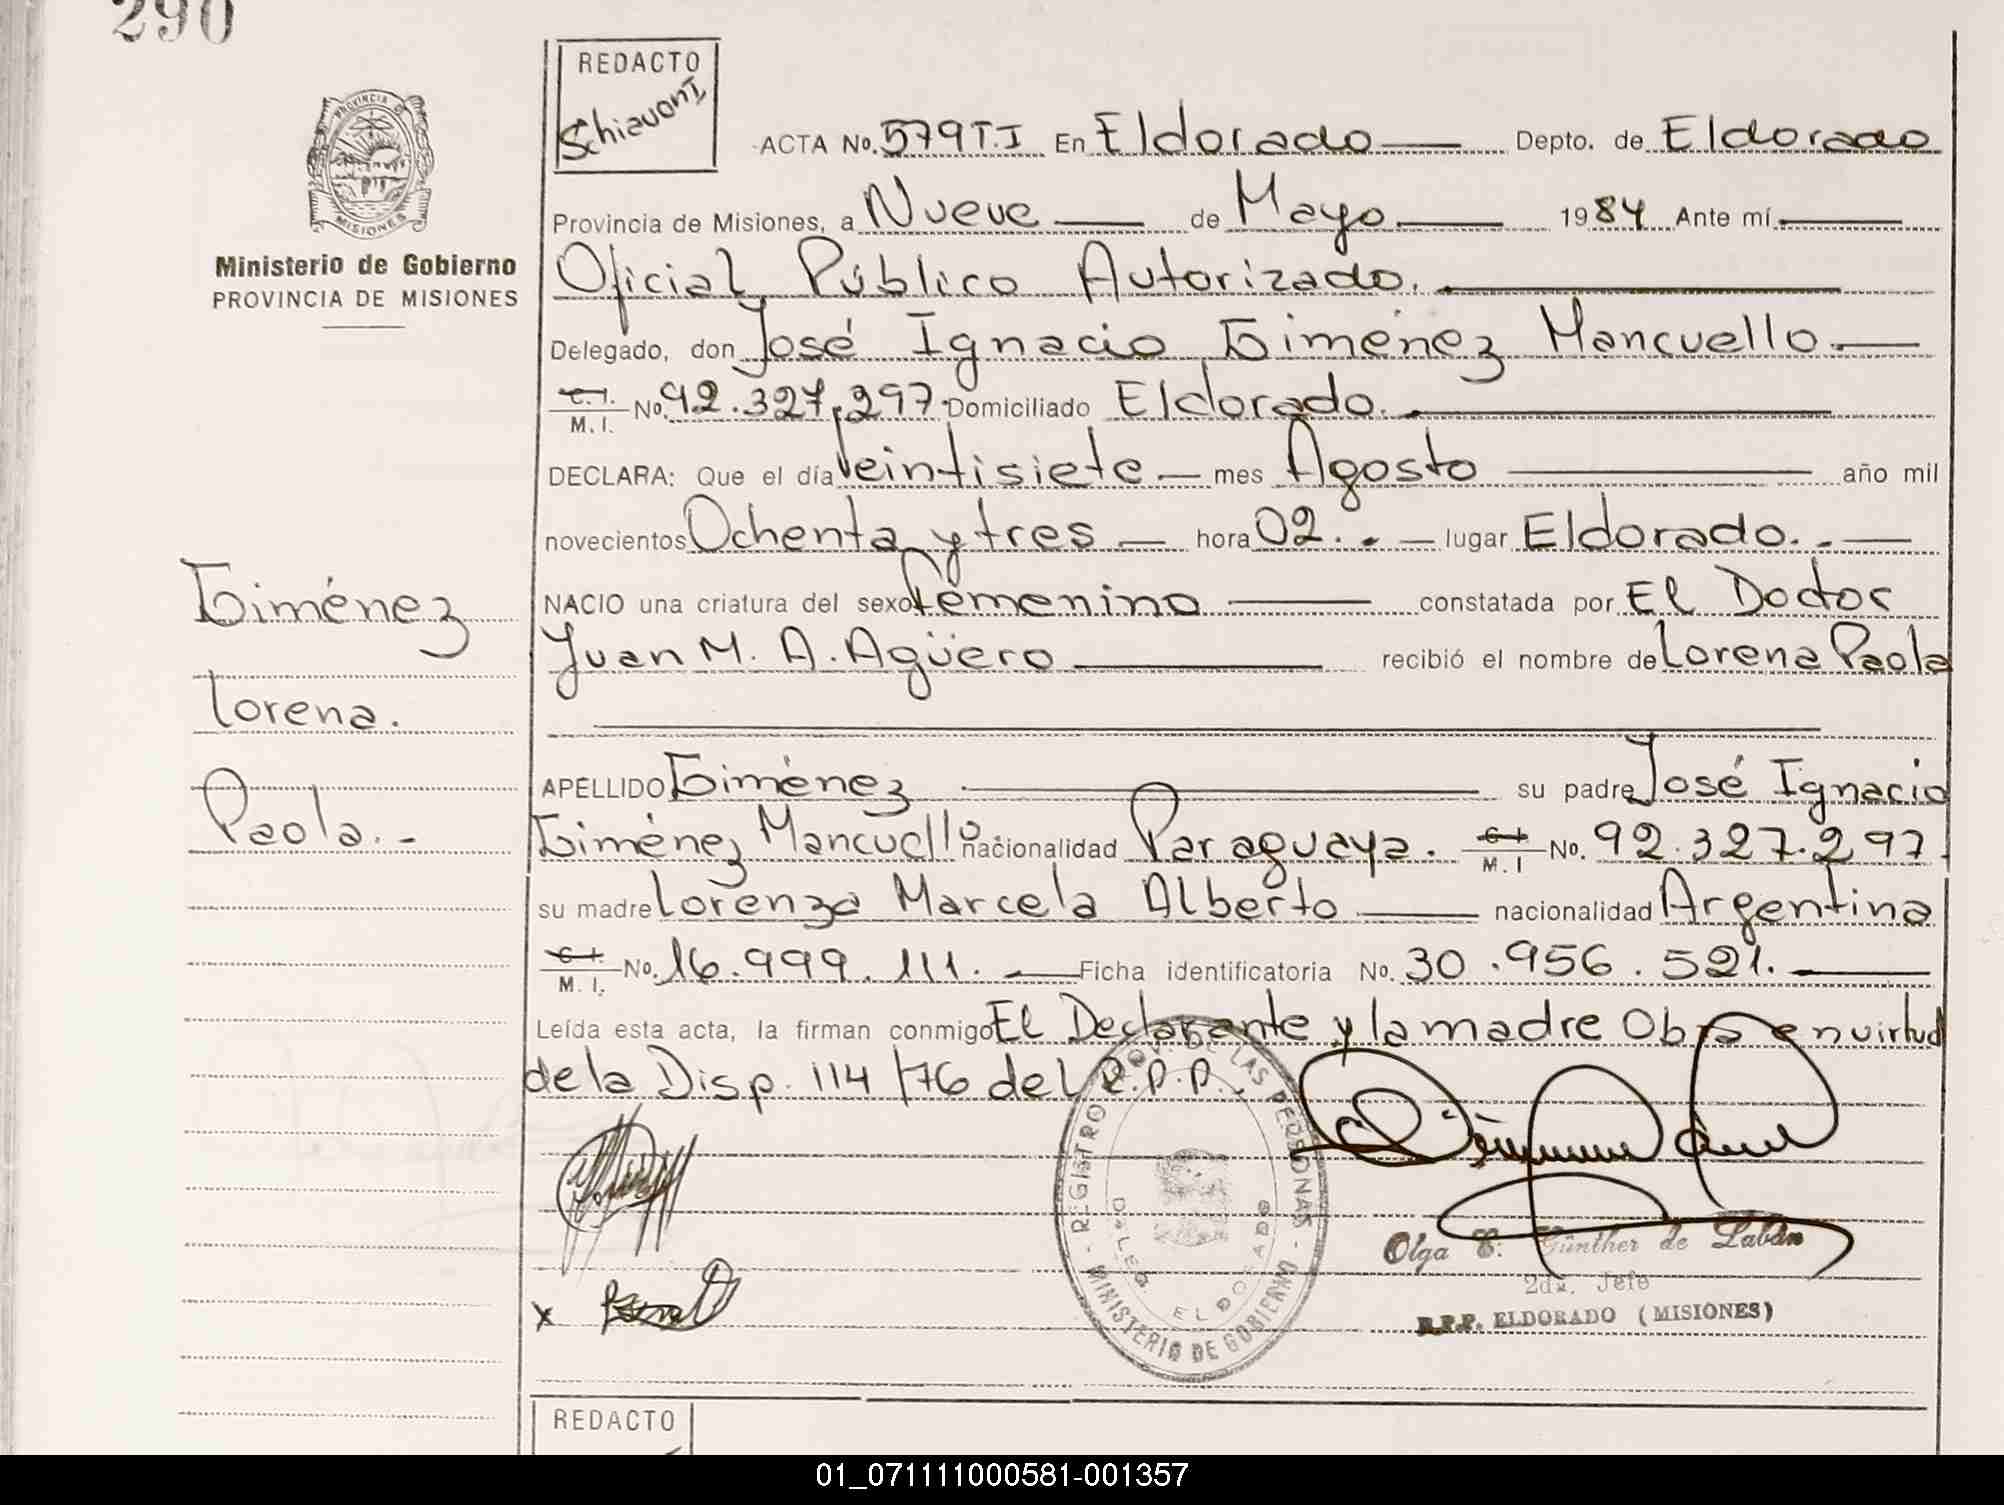 290
REDACTO
Schiavoni
PROVINCIA DE
MISIONES
Ministerio de Gobierno
PROVINCIA DE MISIONES
ACTA No. 579 T.I En Eldorado Depto. de Eldorado
Provincia de Misiones, a Nueve de Mayo 1984 Ante mí
Oficial Público Autorizado.
Delegado, don José Ignacio Giménez Mancuello
C.I. M.I. No. 92.327.297. Domiciliado Eldorado.
DECLARA: Que el día Veintisiete mes Agosto año mil
novecientos Ochenta y tres hora 02. lugar Eldorado.
NACIO una criatura del sexo femenino constatada por El Doctor
Juan M. A. Agüero recibió el nombre de Lorena Paola
APELLIDO Giménez su padre José Ignacio
Giménez Mancuello nacionalidad Paraguaya. C.I. M.I No. 92.327.297.
su madre Lorenza Marcela Alberto nacionalidad Argentina
C.I. M.I. No. 16.999.111. Ficha identificatoria No. 30.956.521.
Leída esta acta, la firman conmigo El Declarante y la madre Obra en virtud
de la Disp. 114/76 del R.P.P.
Giménez
Lorena.
Paola.-
REGISTRO PROV. DE LAS PERSONAS
MINISTERIO DE GOBIERNO
DELEG. ELDORADO
x
Olga Günther de Labán
2da. Jefe
R.P.P. ELDORADO (MISIONES)
REDACTO
01_071111000581-001357